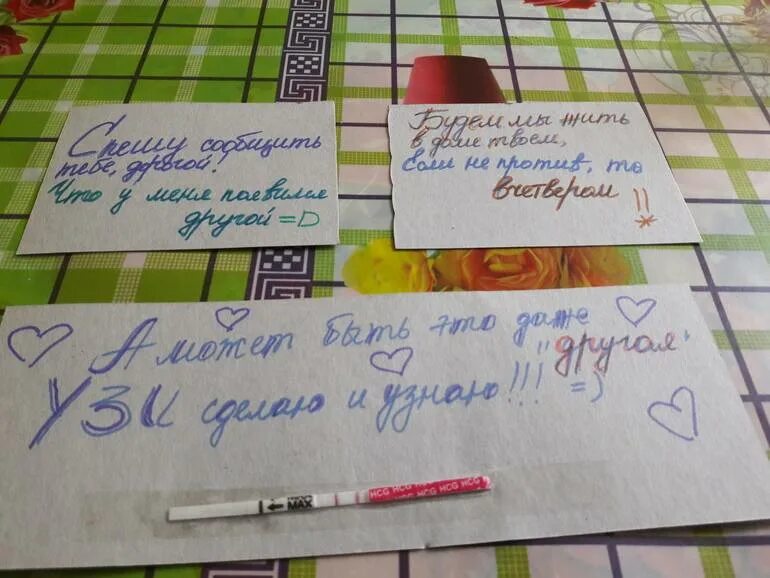 Спешу сообщить
тебе, дорогой!
Что у меня появился
другой =D
Будем мы жить
в доме твоём,
если не против, то
вчетвером !!
*
А может быть это даже
"другая"
УЗИ сделаю и узнаю!!! =)
MAX
HCG HCG HCG HCG
HCG HCG HCG